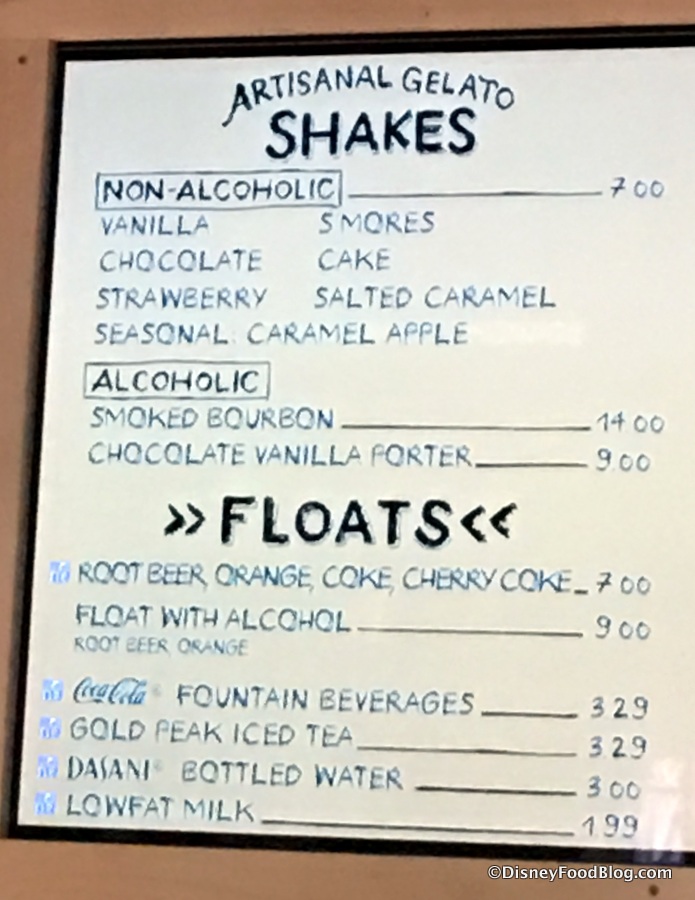 ARTISANAL GELATO
SHAKES
NON-ALCOHOLIC 7 00
VANILLA S MORES
CHOCOLATE CAKE
STRAWBERRY SALTED CARAMEL
SEASONAL: CARAMEL APPLE
ALCOHOLIC
SMOKED BOURBON 14 00
CHOCOLATE VANILLA PORTER 9 00
>> FLOATS <<
ROOT BEER, ORANGE, COKE, CHERRY COKE 7 00
FLOAT WITH ALCOHOL 9 00
ROOT BEER, ORANGE
Coca-Cola® FOUNTAIN BEVERAGES 3 29
GOLD PEAK ICED TEA 3 29
DASANI® BOTTLED WATER 3 00
LOWFAT MILK 1 99
©DisneyFoodBlog.com